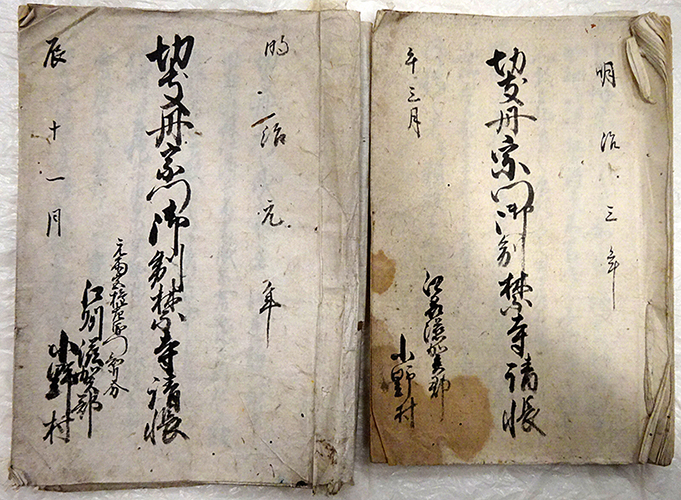 明治三年
切支丹宗門御制禁寺請帳
午三月
江州滋賀郡
小野村
明治元年
切支丹宗門御制禁寺請帳
辰十一月
江州滋賀郡
小野村